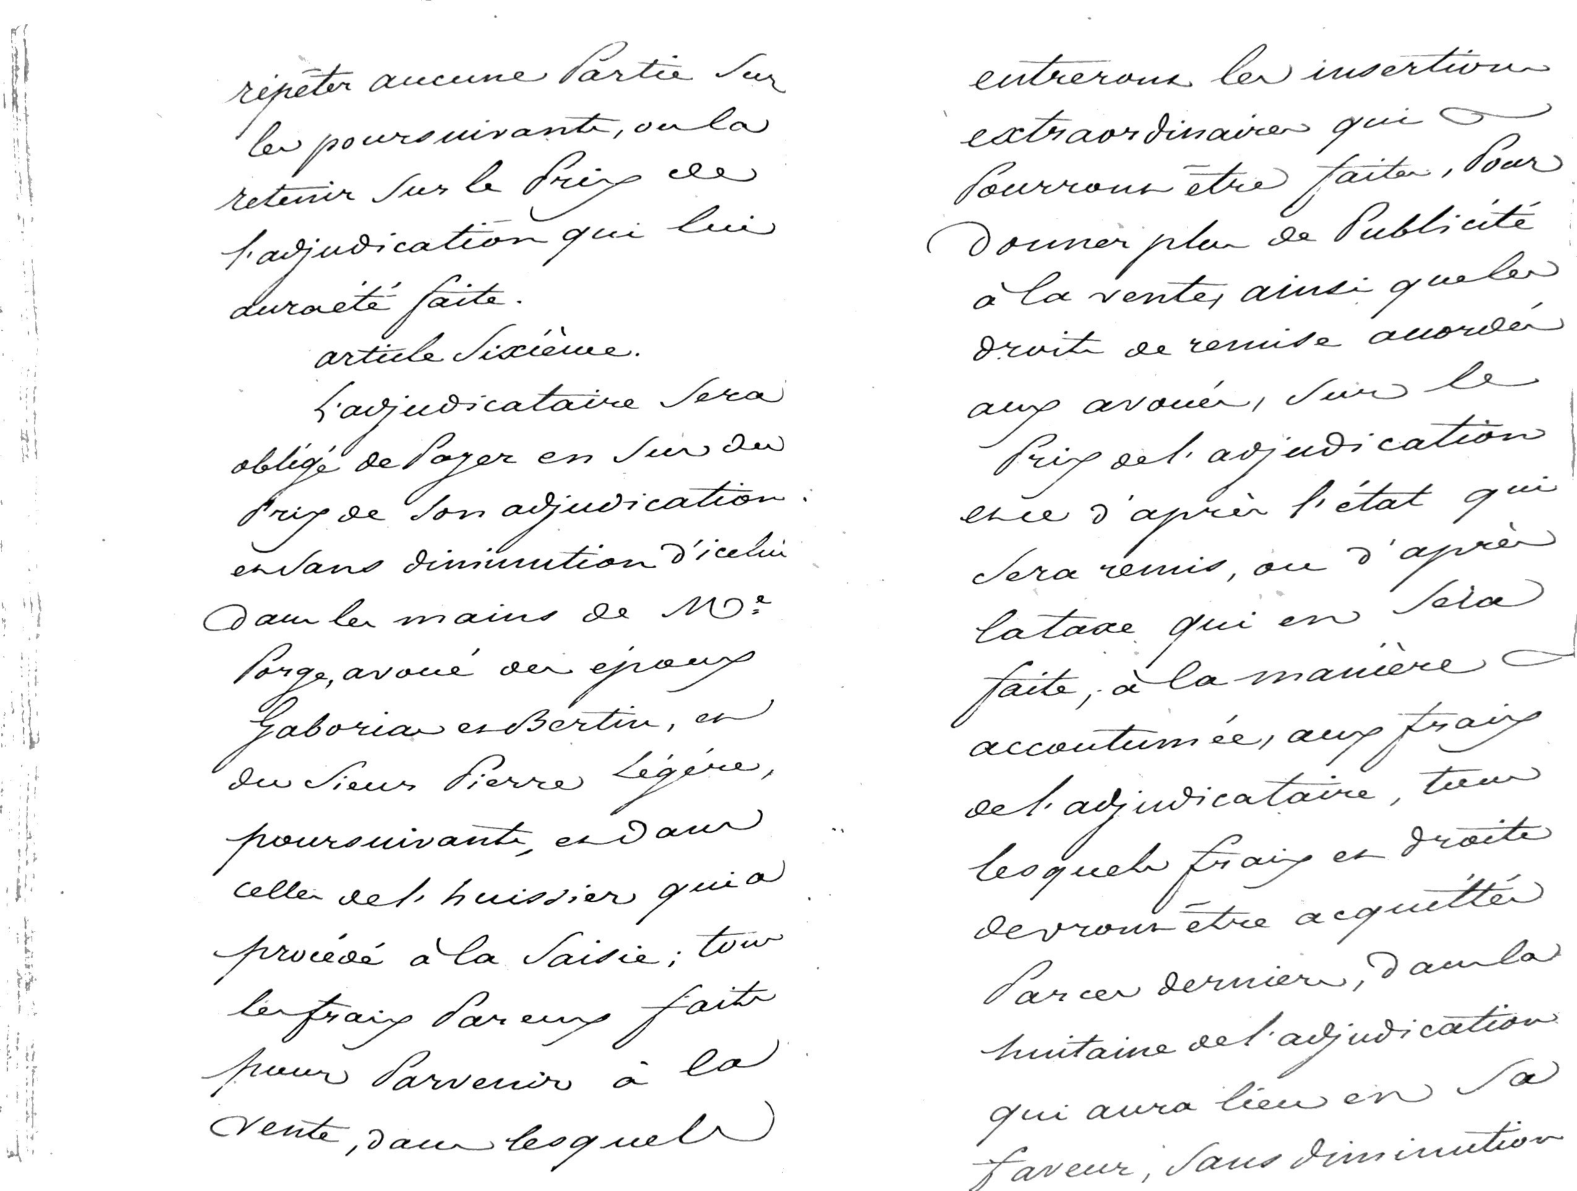 répéter aucune Partie Sur
les poursuivants, ou la
retenir Sur le Prix de
l'adjudication qui lui
aura été faite.
article Sixième.
L'adjudicataire Sera
obligé de Payer en Sus du
Prix de Son adjudication
et Sans diminution d'icelui
Dans les mains de Me
Porge, avoué des époux
Gaboria et Bertin, et
du Sieur Pierre Légére,
poursuivants, et Dans
celles de l'huissier qui a
procédé à la Saisie; tous
les fraix Par eux faits
pour Parvenir à la
vente, dans lesquels
entreront les insertions
extraordinaires qui
Pourront être faites, Pour
Donner plus de Publicité
à la vente, ainsi que les
droits de remise accordés
aux avoués, Sur le
Prix de l'adjudication
et ce d'après l'état qui
Sera remis, ou d'après
la taxe qui en Séra
faite, à la manière
accoutumée, aux fraix
de l'adjudicataire, tous
lesquels fraix et droits
devront être acquittés
Par ces derniers, Dans la
huitaine de l'adjudication
qui aura lieu en Sa
faveur, Sans diminution